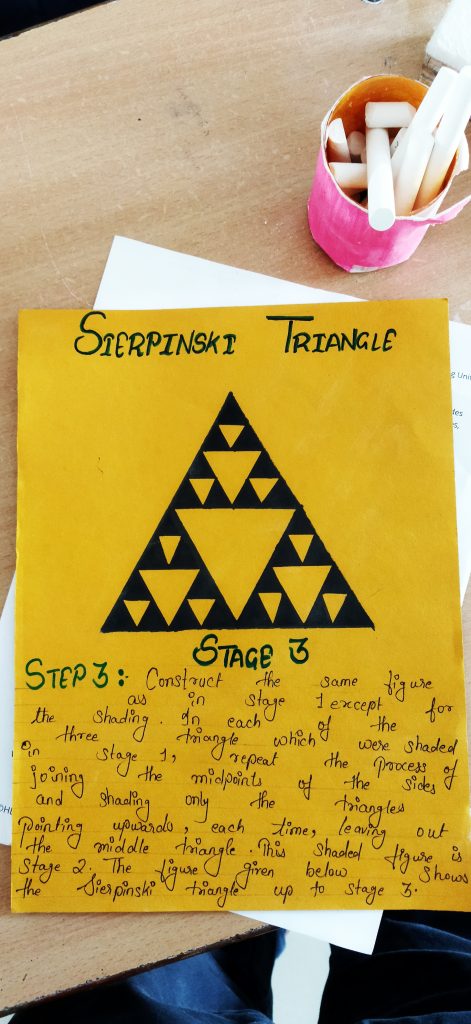 SIERPINSKI TRIANGLE
STAGE 3
STEP 3: Construct the same figure
as in stage 1 except for
the shading. In each of the
three triangle which were shaded
in stage 1, repeat the process of
joining the midpoints of the sides
and shading only the triangles
pointing upwards, each time, leaving out
the middle triangle. This shaded figure is
Stage 2. The figure given below shows
the Sierpinski triangle up to stage 3.